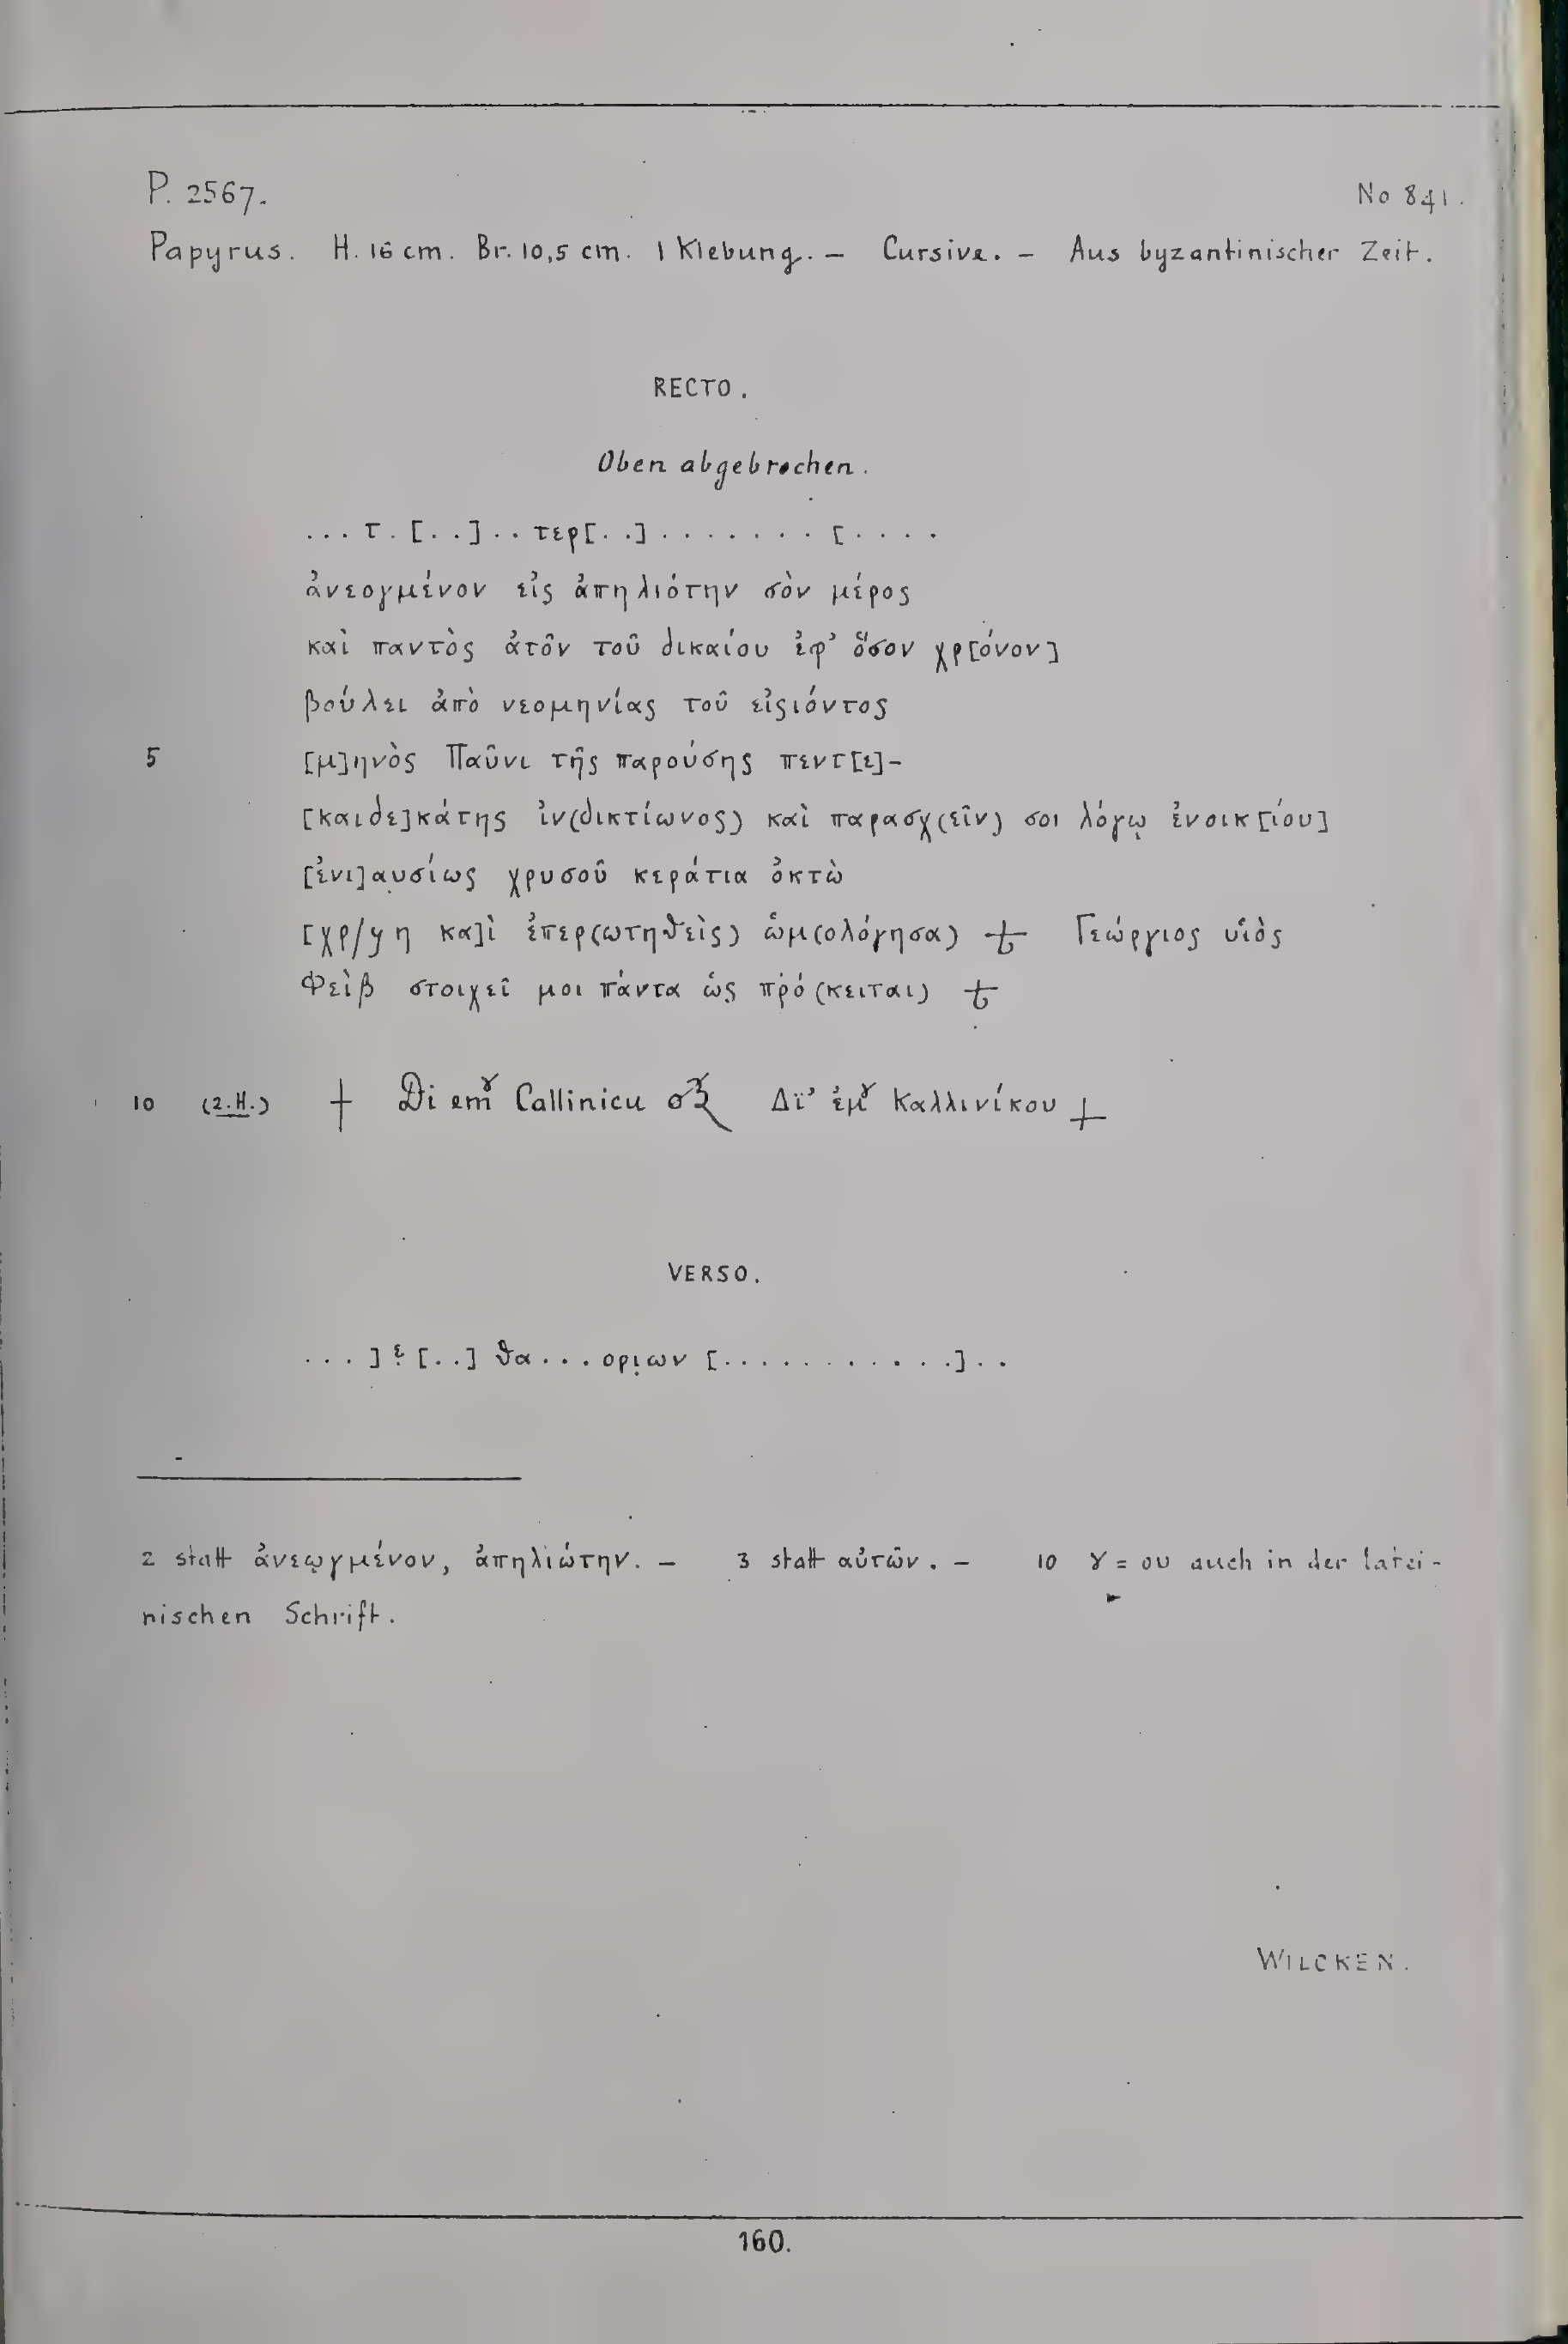 P. 2567.
No 841.
Papyrus. H. 16 cm. Br. 10,5 cm. 1 Klebung. – Cursive. – Aus byzantinischer Zeit.
RECTO.
Oben abgebrochen.
... τ. [..].. τερ[..]....... [....
ἀνεογμένον εἰς ἀπηλιότην σὸν μέρος
καὶ παντὸς ἀτôν τοῦ δικαίου ἐφ’ ὅσον χρ[όνον]
βούλει ἀπὸ νεομηνίας τοῦ εἰςιόντος
5 [μ]ηνὸς Παῦνι τῆς παρούσης πεντ[ε]-
[καιδε]κάτης ἰν(δικτίωνος) καὶ παρασχ(εῖν) σοι λόγῳ ἐνοικ[ίου]
[ἐνι]αυσίως χρυσοῦ κεράτια ὀκτὼ
[χρ/y η κα]ὶ ἐπερ(ωτηθεὶς) ὡμ(ολόγησα) ⳨ Γεώργιος υἱὸς
Φεὶβ στοιχεῖ μοι πάντα ὡς πρό(κειται) ⳨
10 (2.H.) + Di emȣ Callinicu Δϊ’ ἐμȣ Καλλινίκου +
VERSO.
...] ε̣ [..] θα...ορι̣ων [...........]..
2 statt ἀνεῳγμένον, ἀπηλιώτην. – 3 statt αὐτῶν. – 10 ȣ = ου auch in der latei-
nischen Schrift.
WILCKEN.
160.